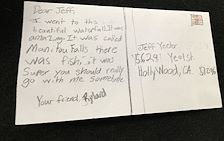 Dear Jeff,
I went to this
beautiful waterfall. It was
amazing. It was called
Manitou falls there
was fish, it was
super you should really
go with me sometime
Your friend, Ryland
Jeff Yeeter
5629 Yeolst
Hollywood, CA